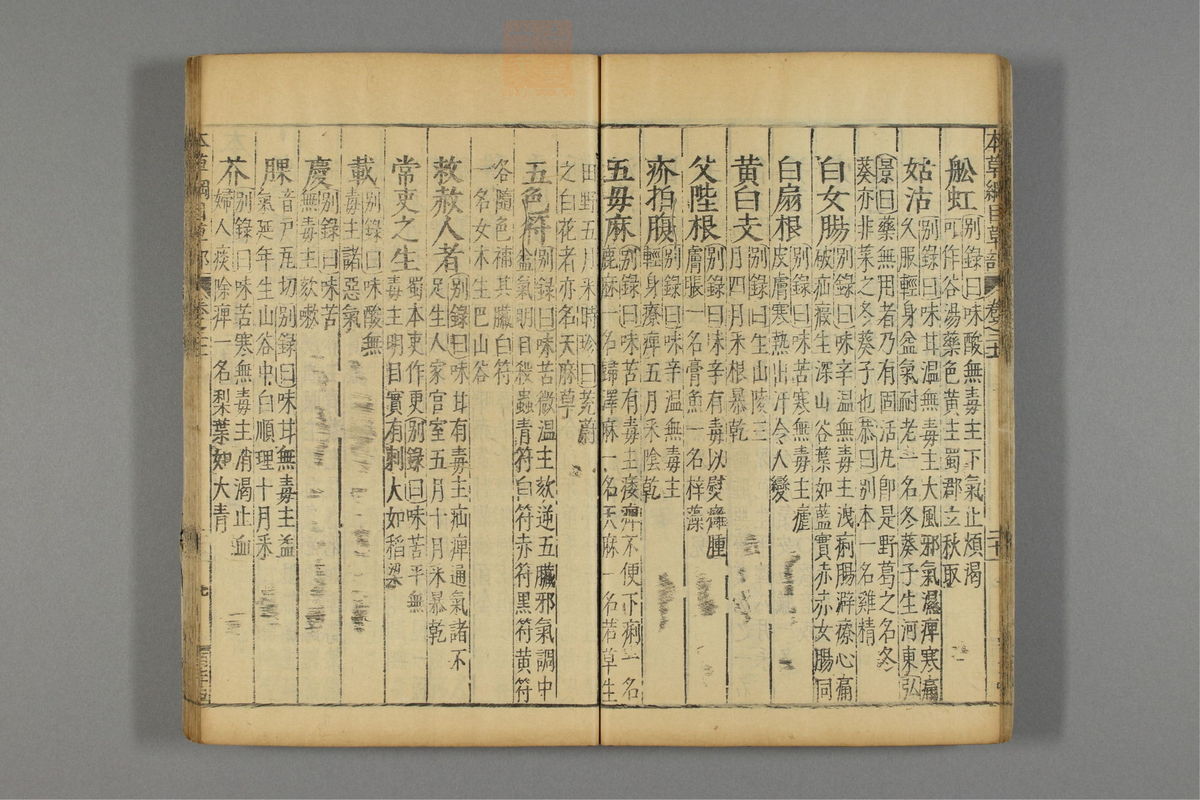 舩虹
別錄曰味酸無毒主下氣止煩渴
可作浴湯藥色黃生蜀郡立秋取
姑沽
別錄曰味甘溫無毒主大風邪氣濕痹寒痛
久服輕身益氣耐老一名冬葵子生河東弘
景曰藥無用者乃有固活丸卽是野葛之名冬
葵亦非菜之冬葵子也恭曰別本一名雞精
白女腸
別錄曰味辛溫無毒主洩痢腸澼療心痛
破疝瘕生深山谷葉如藍實赤赤女腸同
白扇根
別錄曰味苦寒無毒主瘧
皮膚寒熱出汗令人變
黃白支
別錄曰生山陵三
月四月采根暴乾
父陛根
別錄曰味辛有毒以熨癰腫
膚脹一名膏魚一名梓藻
疥拍腹
別錄曰味辛溫無毒主
輕身療痹五月采陰乾
五毋麻
別錄曰味苦有毒主痿痹不便下痢一名
鹿麻一名歸澤麻一名天麻一名若草生
田野五月采時珍曰茺蔚
之白花者亦名天麻草
五色符
別錄曰味苦微溫主欬逆五臟邪氣調中
益氣明目殺蟲靑符白符赤符黑符黃符
各隨色補其臟白符
一名女木生巴山谷
救赦人者
別錄曰味甘有毒主疝痹通氣諸不
足生人家宮室五月十月采暴乾
常吏之生
蜀本吏作更別錄曰味苦平無
毒主明目實有刺大如稻粱
載
別錄曰味酸無
毒主諸惡氣
慶
別錄曰味苦
無毒主欬嗽
腂
音戶瓦切別錄曰味甘無毒主益
氣延年生山谷中白順理十月采
芥
別錄曰味苦寒無毒主消渴止血
婦人疾除痹一名梨葉如大靑